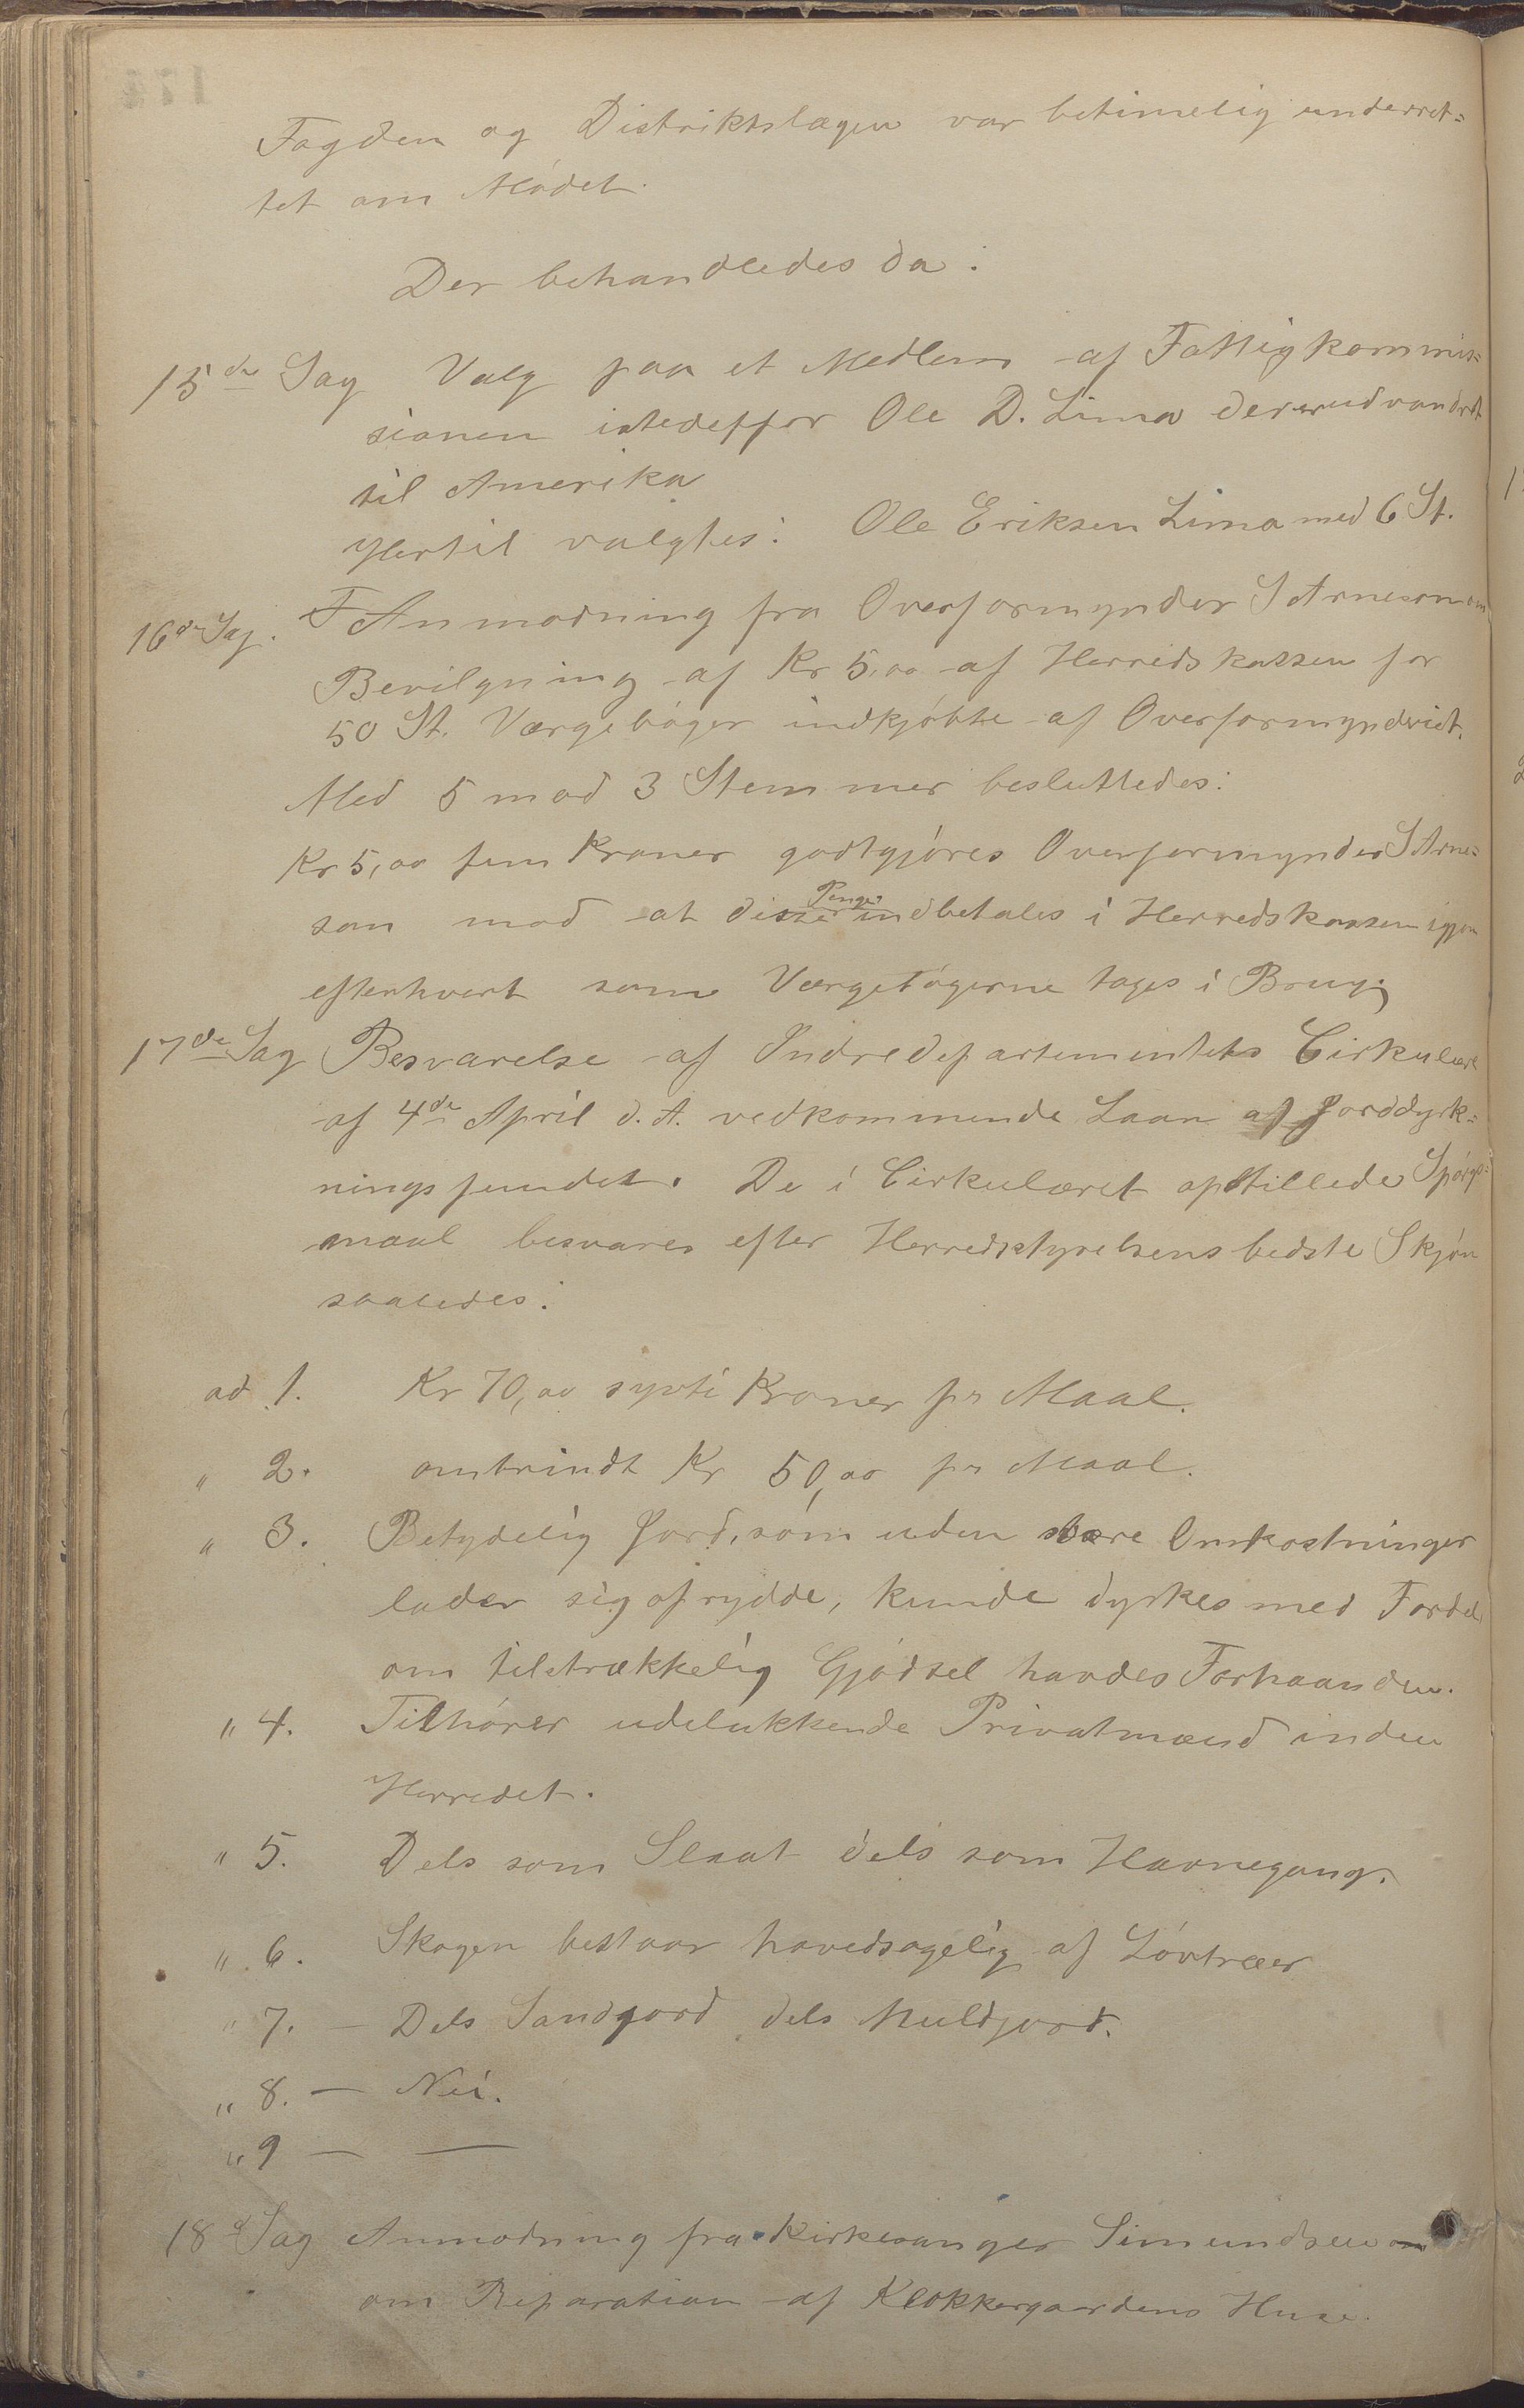 Fogden og Distriktslægen var betimelig underret=
tet om Mödet.
Der behandledes da:
15de Sag Valg paa et Medlem af Fattigkommis=
sionen istedetfor Ole D. Lima der er udvandret
til Amerika
Hertil valgtes: Ole Eriksen Lima med 6 St.
16de Sag. Anmodning fra Overformynder S Arneson om
Bevilgning af Kr 5,00 af Herredskassen for
50 St. Værgebøger indkjöbte af Overformynderiet.
Med 5 mod 3 Stemmer besluttedes:
Kr 5,00 fem Kroner godtgjöres Overformynder S Arne=
son mod at disse Penge indbetales i Herredskassen igjen
efterhvert som Værgebögerne tages i Brug.
17de Sag Besvarelse af Indredepartementets Cirkulære
af 4de April d. A. vedkommende Laan af Jorddyrk=
ningsfondet. De i Cirkulæret opstillede Spörgs=
maal besvares efter Herredsstyrelsens bedste Skjön
saaledes:
ad 1. Kr 70,00 sytti Kroner pr Maal.
" 2. omtrindt Kr 50,00 pr Maal.
" 3. Betydelig Jord, som uden store Omkostninger
lader sig oprydde, kunde dyrkes med Fordel
om tilstrækkelig Gjödsel havdes Forhaanden.
" 4. Tilhörer udelukkende Privatmænd inden
Herredet.
" 5. Dels som Slaat dels som Havnegang.
" 6. Skogen bestaar hovedsagelig af Lövtræer
" 7. – Dels Sandjord dels Muldjord.
" 8. – Nei.
" 9 – —
18d Sag Anmodning fra Kirkesanger Simundsen om
om Reparation af Klokkergaardens Huse.